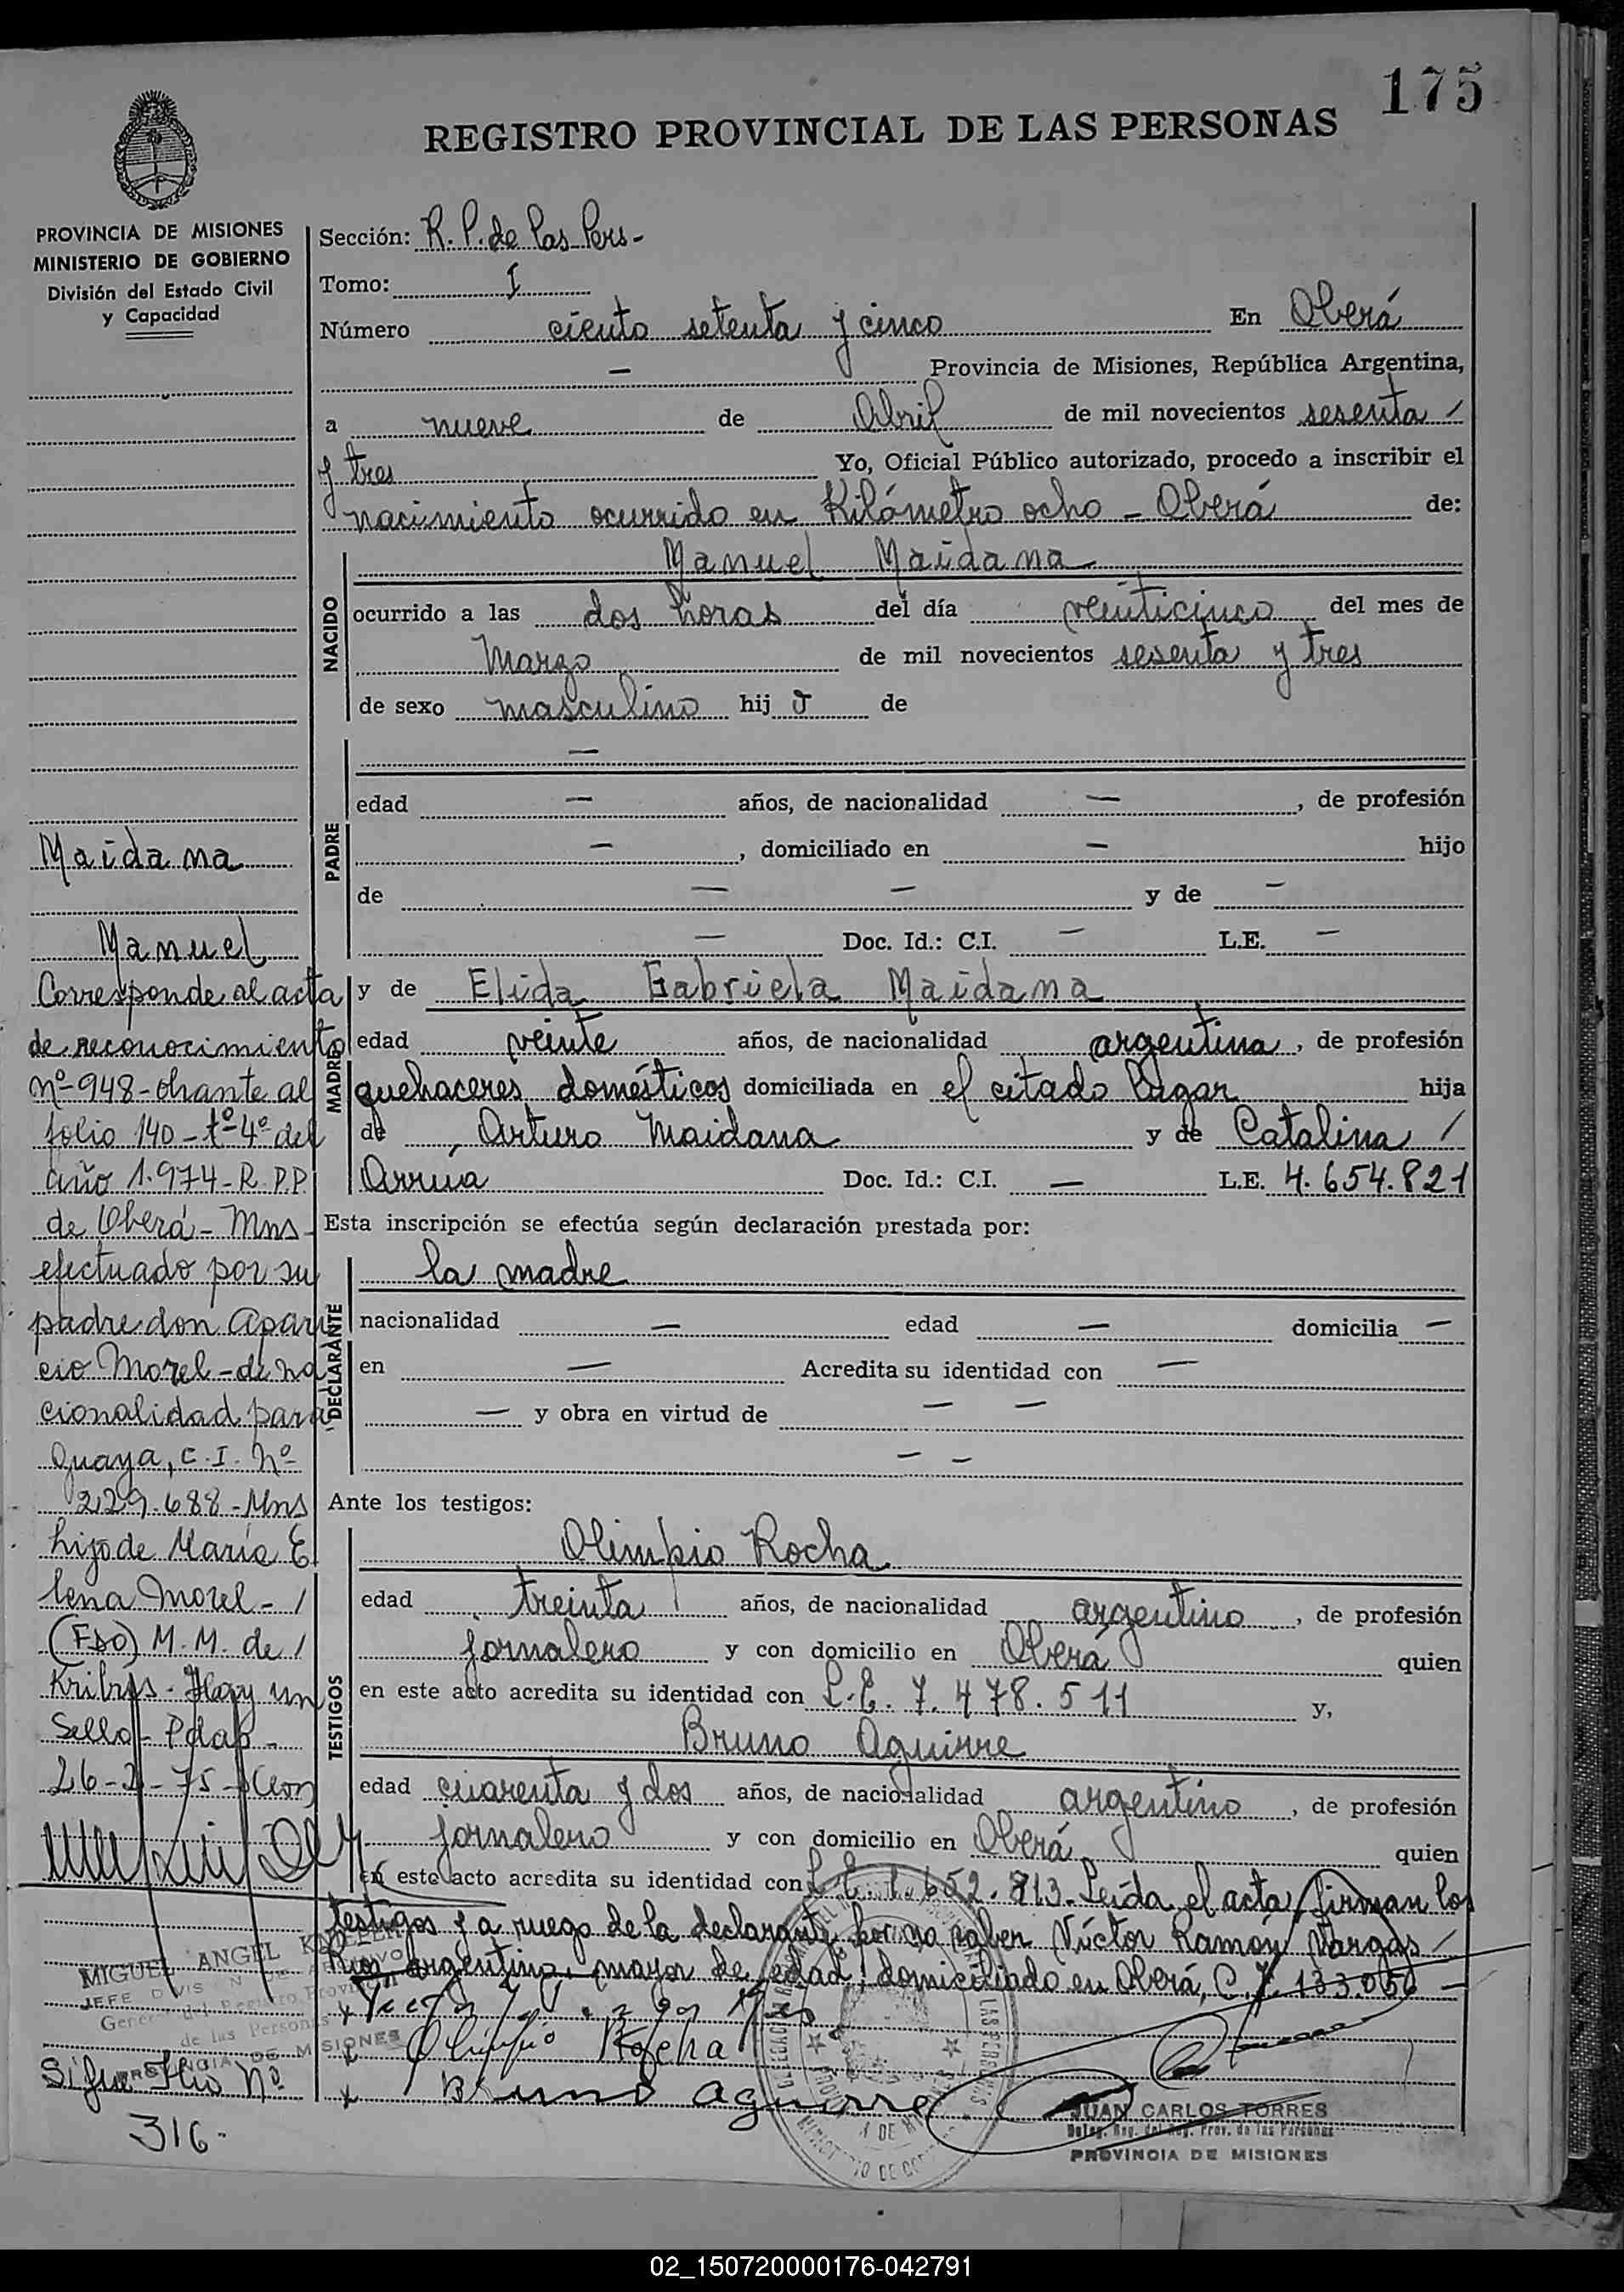 175
REGISTRO PROVINCIAL DE LAS PERSONAS
PROVINCIA DE MISIONES
MINISTERIO DE GOBIERNO
División del Estado Civil
y Capacidad
Sección: R. P. de las Pers-
Tomo: I
Número ciento setenta y cinco En Oberá
— Provincia de Misiones, República Argentina,
a nueve de Abril de mil novecientos sesenta /
y tres Yo, Oficial Público autorizado, procedo a inscribir el
nacimiento ocurrido en Kilómetro ocho - Oberá de:
NACIDO
Manuel Maidana
ocurrido a las dos horas del día veinticinco del mes de
Marzo de mil novecientos sesenta y tres
de sexo masculino hij o de
PADRE
—
edad — años, de nacionalidad —, de profesión
—, domiciliado en — hijo
de — — y de —
— Doc. Id.: C.I. — L.E. —
MADRE
y de Elida Gabriela Maidana
edad veinte años, de nacionalidad argentina, de profesión
quehaceres domésticos domiciliada en el citado lugar hija
de Arturo Maidana y de Catalina /
Arrúa Doc. Id.: C.I. — L.E. 4.654.821
Esta inscripción se efectúa según declaración prestada por:
DECLARANTE
la madre
nacionalidad — edad — domicilia —
en — Acredita su identidad con —
— y obra en virtud de — —
— —
Ante los testigos:
TESTIGOS
Olimpio Rocha
edad treinta años, de nacionalidad argentino, de profesión
jornalero y con domicilio en Oberá quien
en este acto acredita su identidad con L.E. 7.478.511 y,
Bruno Aguirre
edad cuarenta y dos años, de nacionalidad argentino, de profesión
jornalero y con domicilio en Oberá quien
en este acto acredita su identidad con L.E. 1.652.813- Leída el acta, firman los
testigos y a ruego de la declarante por no saber Víctor Ramón Vargas /
Rios argentino, mayor de edad, domiciliado en Oberá, C.I. 133.056 -
x
x Olimpio Rocha
x Bruno Aguirre
JUAN CARLOS TORRES
Deleg. Reg. del Reg. Prov. de las Personas
PROVINCIA DE MISIONES
Maidana
Manuel
Corresponde al acta
de reconocimiento
Nº-948-obrante al
folio 140-tº-4º del
año 1.974-R.P.P.
de Oberá-Mns-
efectuado por su
padre don Apari
cio Morel-de na
cionalidad para
guaya, C.I. Nº
229.688-Mns
hijo de María E
lena Morel- /
(FDO) M.M. de /
Hay un
Sello- Pdas-
MIGUEL ANGEL
JEFE DIVISION DE ARCHIVO
General del Registro Provincial
de las Personas
PROVINCIA DE MISIONES
Sigue Flio Nº
316-
02_150720000176-042791